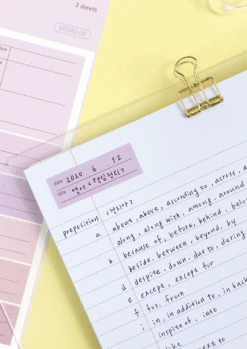 2 sheets
2020 6 12
영어 <주립전치사>
preposition <전치사>
a about, above, according to, across, a
along, along with, among, around
because of, before, behind, below
b beside, between, beyond, by
d despite, down, due to, during
e except, except for
f for, from
i in, in addition to, in back
inspite of, into
like
next to